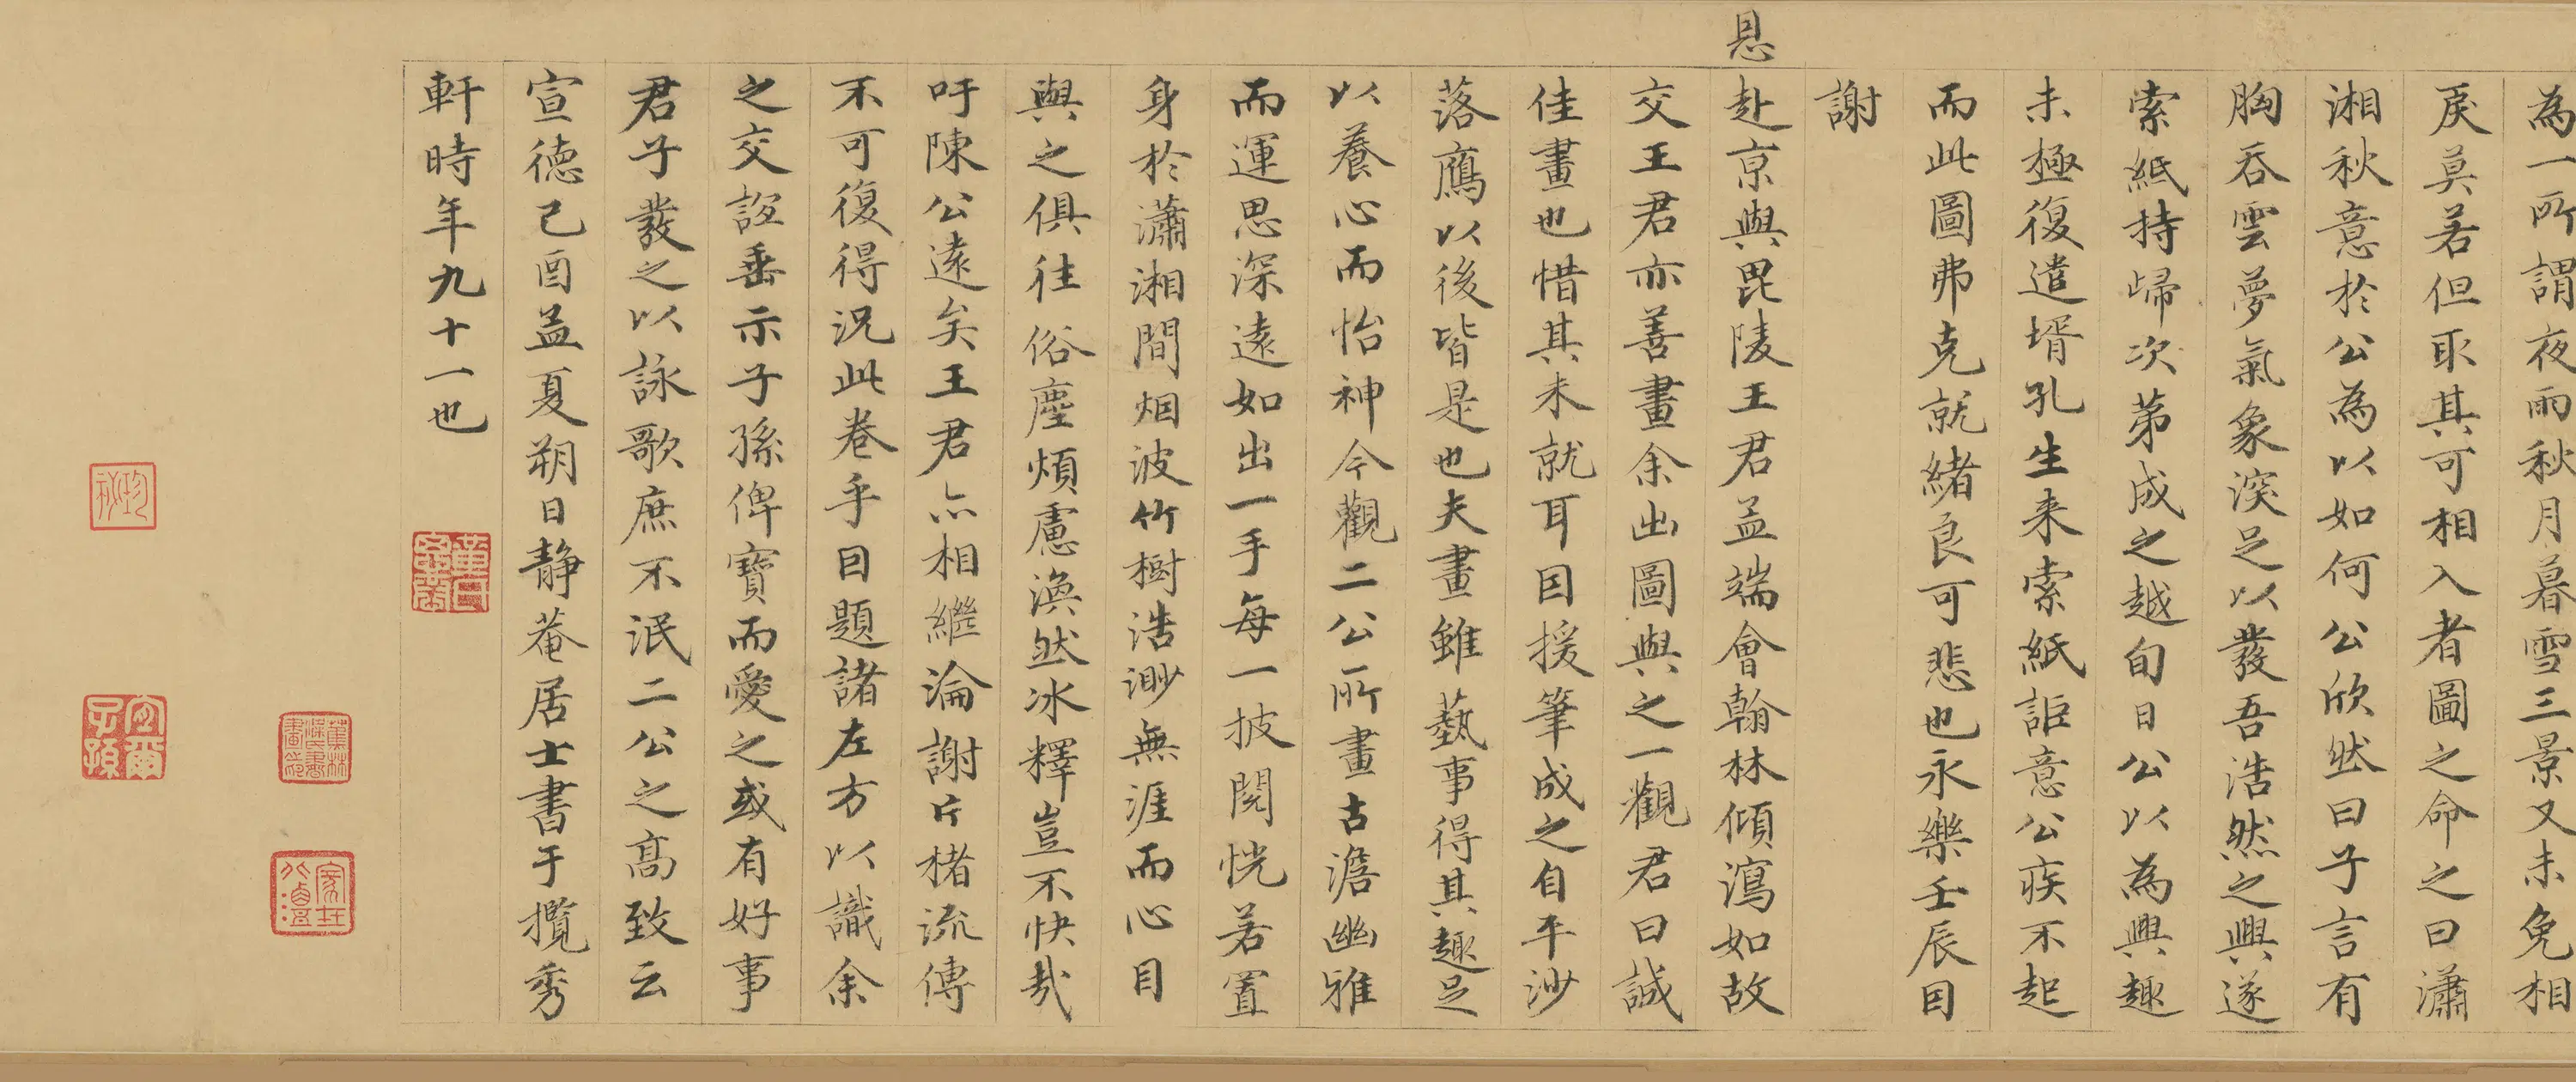 為一所謂夜雨秋月暮雪三景又未免相
戾莫若但取其可相入者圖之命之曰瀟
湘秋意於公為以如何公欣然曰子言有
胸吞雲夢氣象深足以發吾浩然之興遂
索紙持歸次第成之越旬日公以為興趣
未極復遣壻孔生来索紙詎意公疾不起
而此圖弗克就緒良可悲也永樂壬辰因
謝
恩
赴京與毘陵王君孟端會翰林傾瀉如故
交王君亦善畫余出圖與之一觀君曰誠
佳畫也惜其未就耳因援筆成之自平沙
落鴈以後皆是也夫畫雖藝事得其趣足
以養心而怡神今觀二公所畫古澹幽雅
而運思深遠如出一手每一披閱恍若置
身於瀟湘間烟波竹樹浩渺無涯而心目
與之俱往俗塵煩慮渙然冰釋豈不快哉
吁陳公遠矣王君亦相繼淪謝片楮流傳
不可復得況此卷乎因題諸左方以識余
之交誼垂示子孫俾寶而愛之或有好事
君子發之以詠歌庶不泯二公之高致云
宣德己酉孟夏朔日静菴居士書于攬秀
軒時年九十一也
蕉林梁氏書畫之印
宜爾子孫